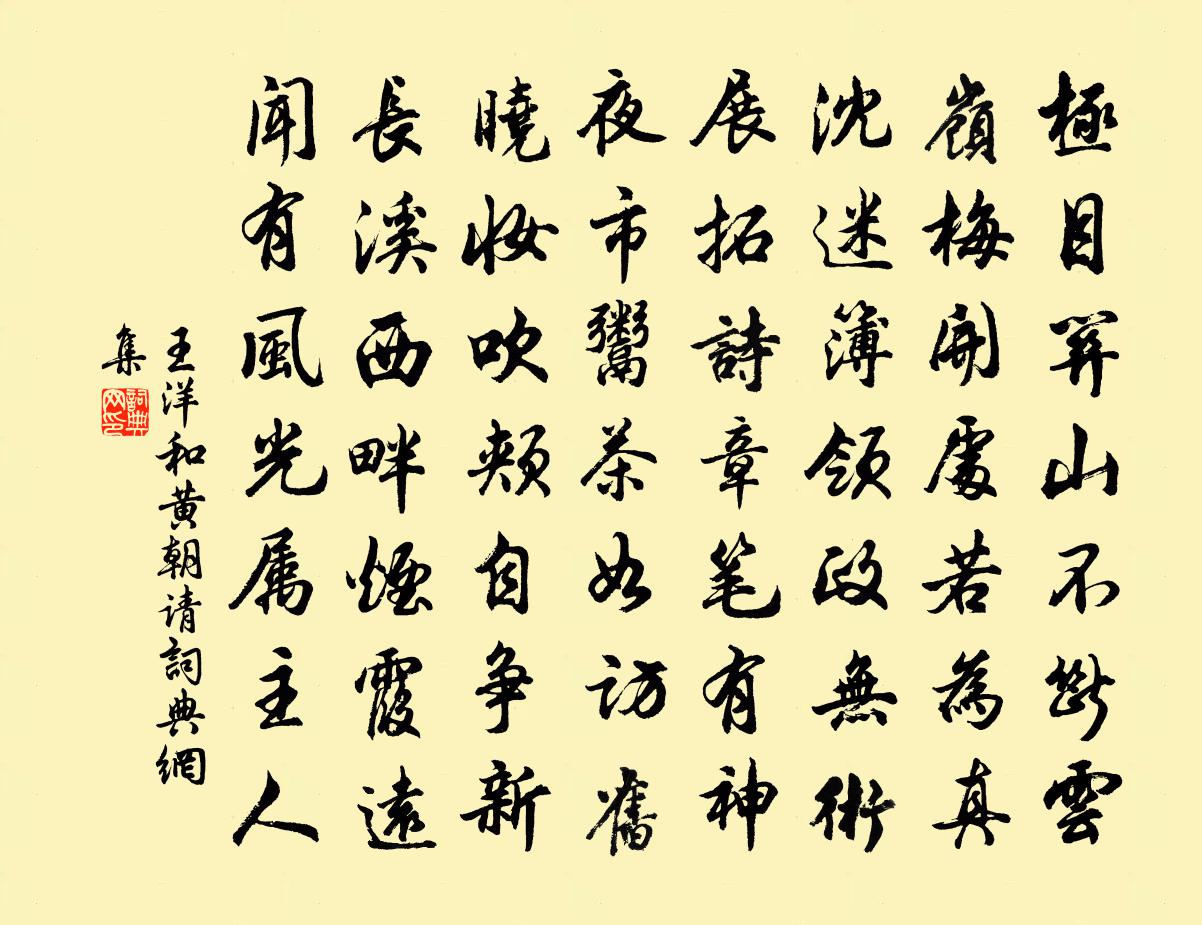 極目笄山不斷雲
嶺梅開處若為真
沈迷簿領政無術
展拓詩章笔有神
夜市鬻茶如訪舊
曉妝吹頰自争新
長溪西畔煙霞遠
聞有風光属主人
王洋和黄朝请詞典網
集
詞典网印